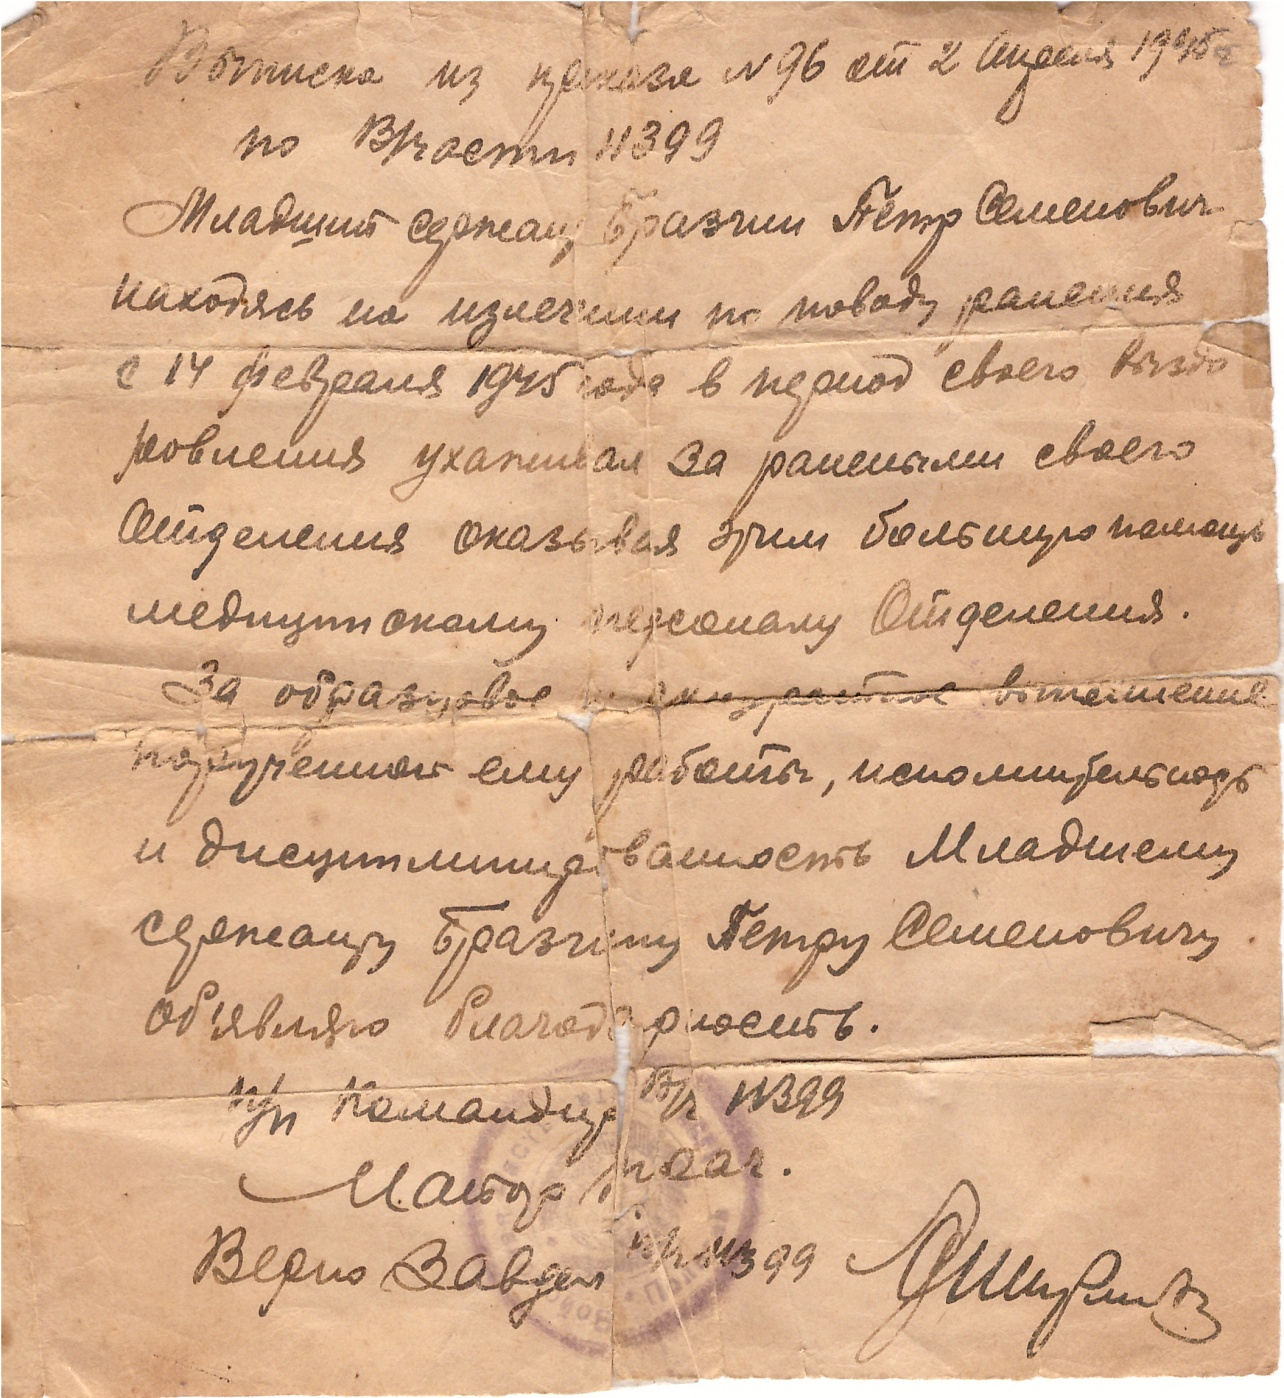 Выписка из приказа N 96 от 2 Апреля 1945 г
по В/части 11399
Младший сержант Бразгин Пётр Семенович
находясь на излечении по поводу ранения
с 14 февраля 1945 года в период своего выздо
ровления ухаживал за ранеными своего
Отделения оказывая этим большую помощь
медицинскому персоналу Отделения.
За образцовое и аккуратное выполнение
порученной ему работы, исполнительность
и дисциплинированность Младшему
сержанту Бразгину Петру Семеновичу
об'являю благодарность.
п/п Командир в/ч 11399
Майор
Верно Завдел п/ч 11399